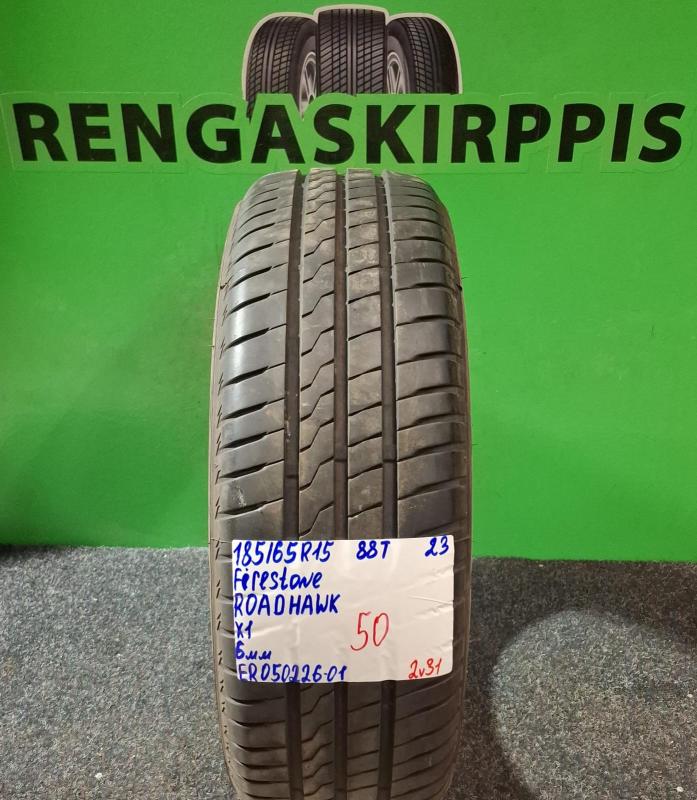 RENGASKIRPPIS
185/65R15 88T 23
Firestone
ROADHAWK
X1
6мм 50
ER050226-01 2v31